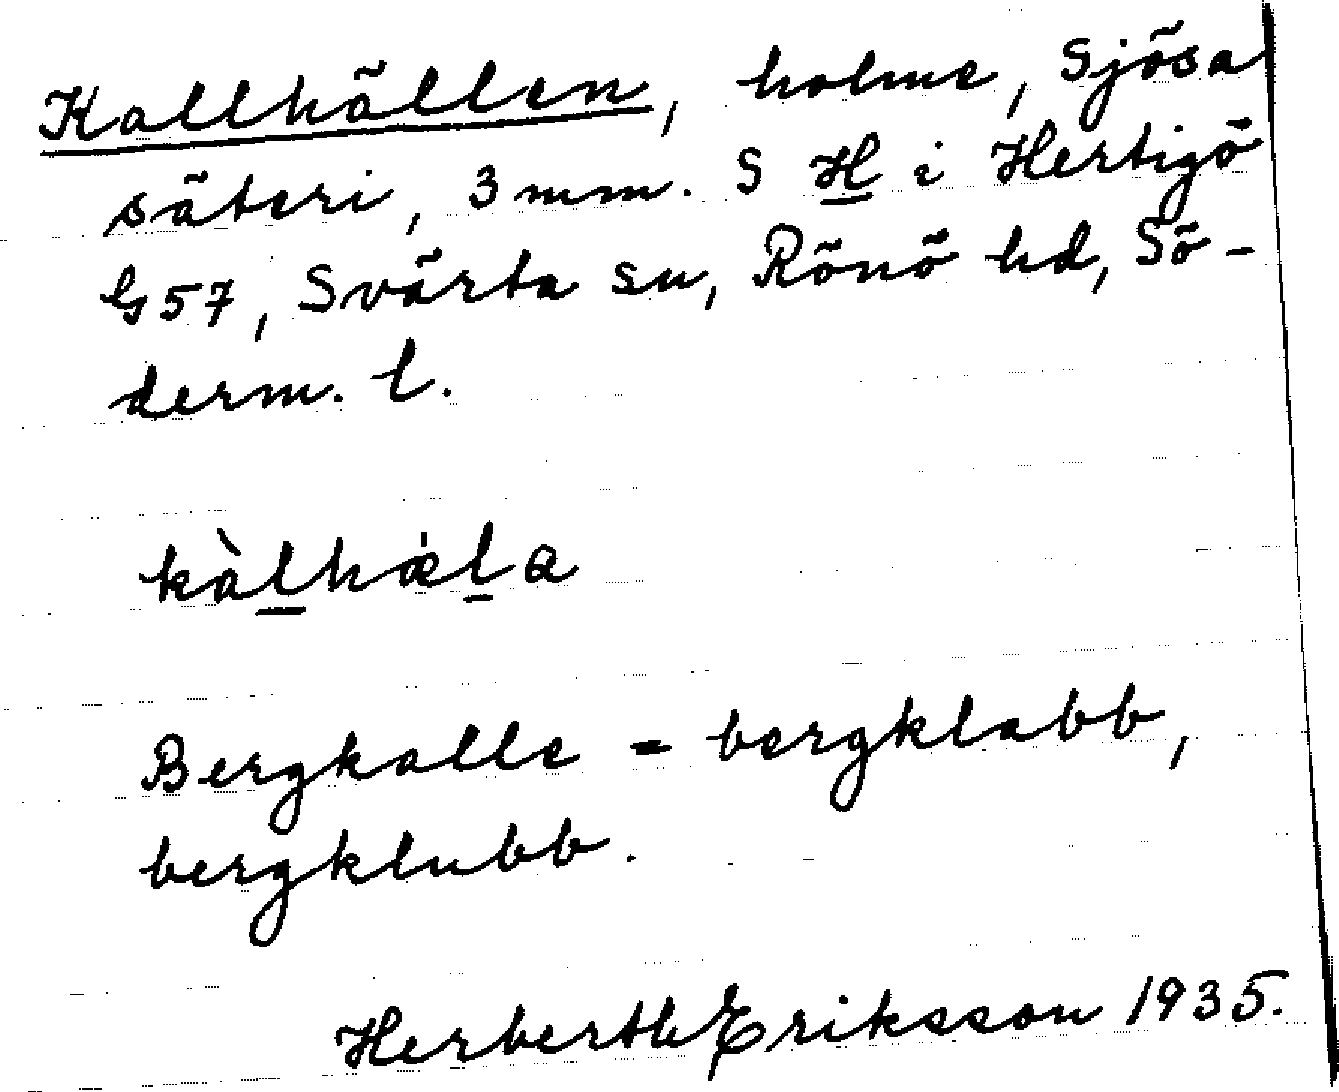 Kallhällen, holme, Sjösa
säteri, 3 mm. S H i Hertigö
G57, Svärta sn, Rönö hd, Sö-
derm. l.
kàlhæ̀la
Bergkalle = bergklabb,
bergklubb.
Eriksson 1935.